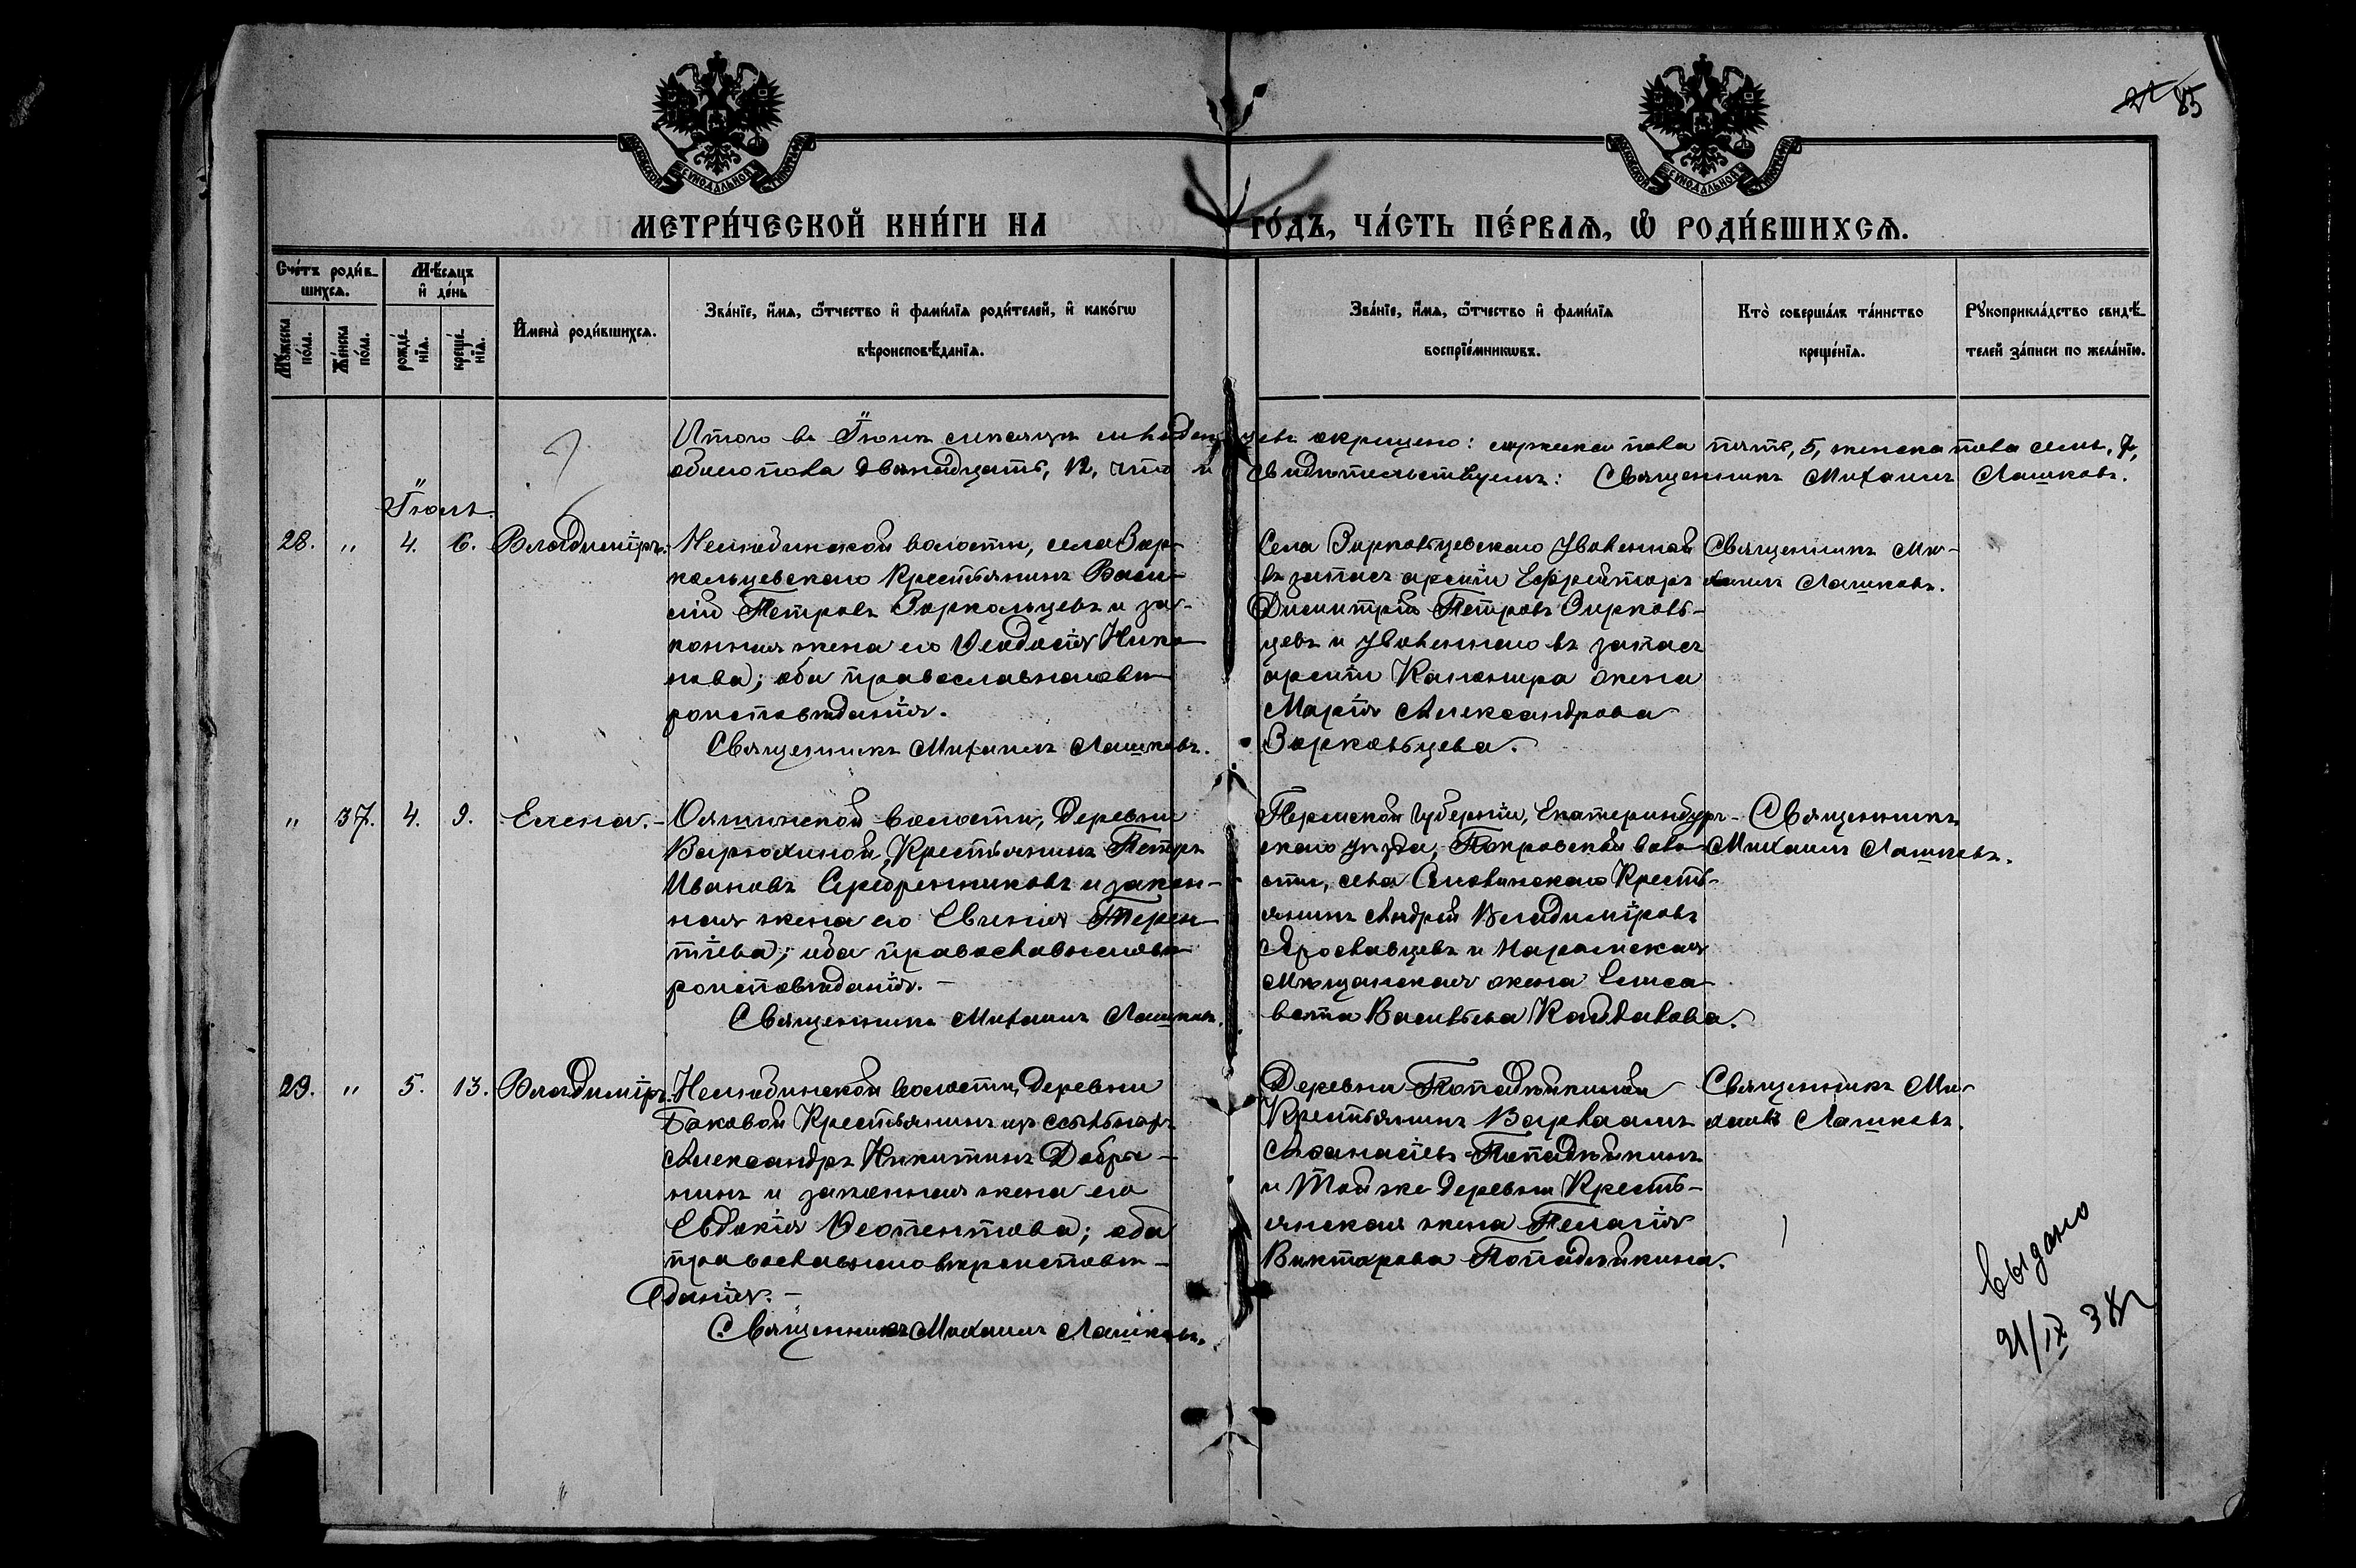 85
МОСКОВСКОЙ СѴНОДАЛЬНОЙ ТИПОГРАФІИ
МОСКОВСКОЙ СѴНОДАЛЬНОЙ ТИПОГРАФІИ
МЕТРИ́ЧЕСКОЙ КНИ́ГИ НА ГО́ДЪ, ЧА́СТЬ ПЕ́РВАѦ, Ѡ РОДИ́ВШИХСѦ.
Сче́тъ роди́в-
шихсѧ.
Мѣ́сѧцъ
и҆ де́нь
Мꙋ́жеска по́ла.
Же́нска по́ла.
рожде́-
нїѧ.
креще́-
нїѧ.
И҆мена̀ роди́вшихсѧ.
Зва́нїе, и҆́мѧ, ѻ҆́тчество и҆ фами́лїѧ роди́телей, и҆ како́гѡ
вѣроисповѣ́данїѧ.
Зва́нїе, и҆́мѧ, ѻ҆́тчество и҆ фами́лїѧ
воспрїе́мникѡвъ.
Кто̀ соверша́лъ та́инство
креще́нїѧ.
Рꙋкоприкла́дство свидѣ́-
телей за́писи по жела́нїю.
Итого въ Іюнѣ мѣсяцѣ младенцевъ окрещено: мужска пола пять, 5, женска пола семь, 7,
обоего пола двѣнадцать, 12, что и свидѣтельствуемъ: Священникъ Михаилъ Лашковъ.
Іюль.
28. " 4. 6. Владиміръ.
Нелюбинской волости, села Зор-
кальцевскаго Крестьянинъ Васи-
лій Петровъ Зоркальцевъ и за-
конная жена его Ѳеодосія Нико-
нова; оба православнаго вѣ-
роисповѣданія.
Священникъ Михаилъ Лашковъ.
Села Зоркальцевскаго Уволенный
въ запасъ арміи Ефрейторъ
Димитрій Петровъ Зоркаль-
цевъ и уволеннаго въ запасъ
арміи Канонира жена
Марія Александрова
Зоркальцева.
Священникъ Ми-
хаилъ Лашковъ.
" 37. 4. 9. Елена.
волости, Деревни
Варюхиной, Крестьянинъ Петръ
Ивановъ Серебренниковъ и закон-
ная жена его Евгенія Терен-
тіева; оба православнаго вѣ-
роисповѣданія.
Священникъ Михаилъ Лашковъ.
Пермской губерніи, Екатеринбург-
скаго уѣзда, Покровской воло-
сти, села Крестъ-
янинъ Андрей Владиміровъ
Ярославцевъ и Нарымская
Мѣщанская жена Елиса-
вета Васильева Кайдалова.
Священникъ
Михаилъ Лашковъ.
29. " 5. 13. Владиміръ.
Нелюбинской волости, Деревни
Баковой Крестьянинъ изъ ссыльныхъ
Александръ Никитинъ Добры-
нинъ и законная жена его
Евдокія Ѳеопентова; оба
православнаго вѣроисповѣ-
данія.
Священникъ Михаилъ Лашковъ.
Деревни Попадѣйкиной
Крестьянинъ Варлаамъ
Аѳанасіевъ Попадѣйкинъ
и той же деревни Кресть-
янская жена Пелагія
Викторова Попадѣйкина.
Священникъ Ми-
хаилъ Лашковъ.
выдано
21/IX 38г